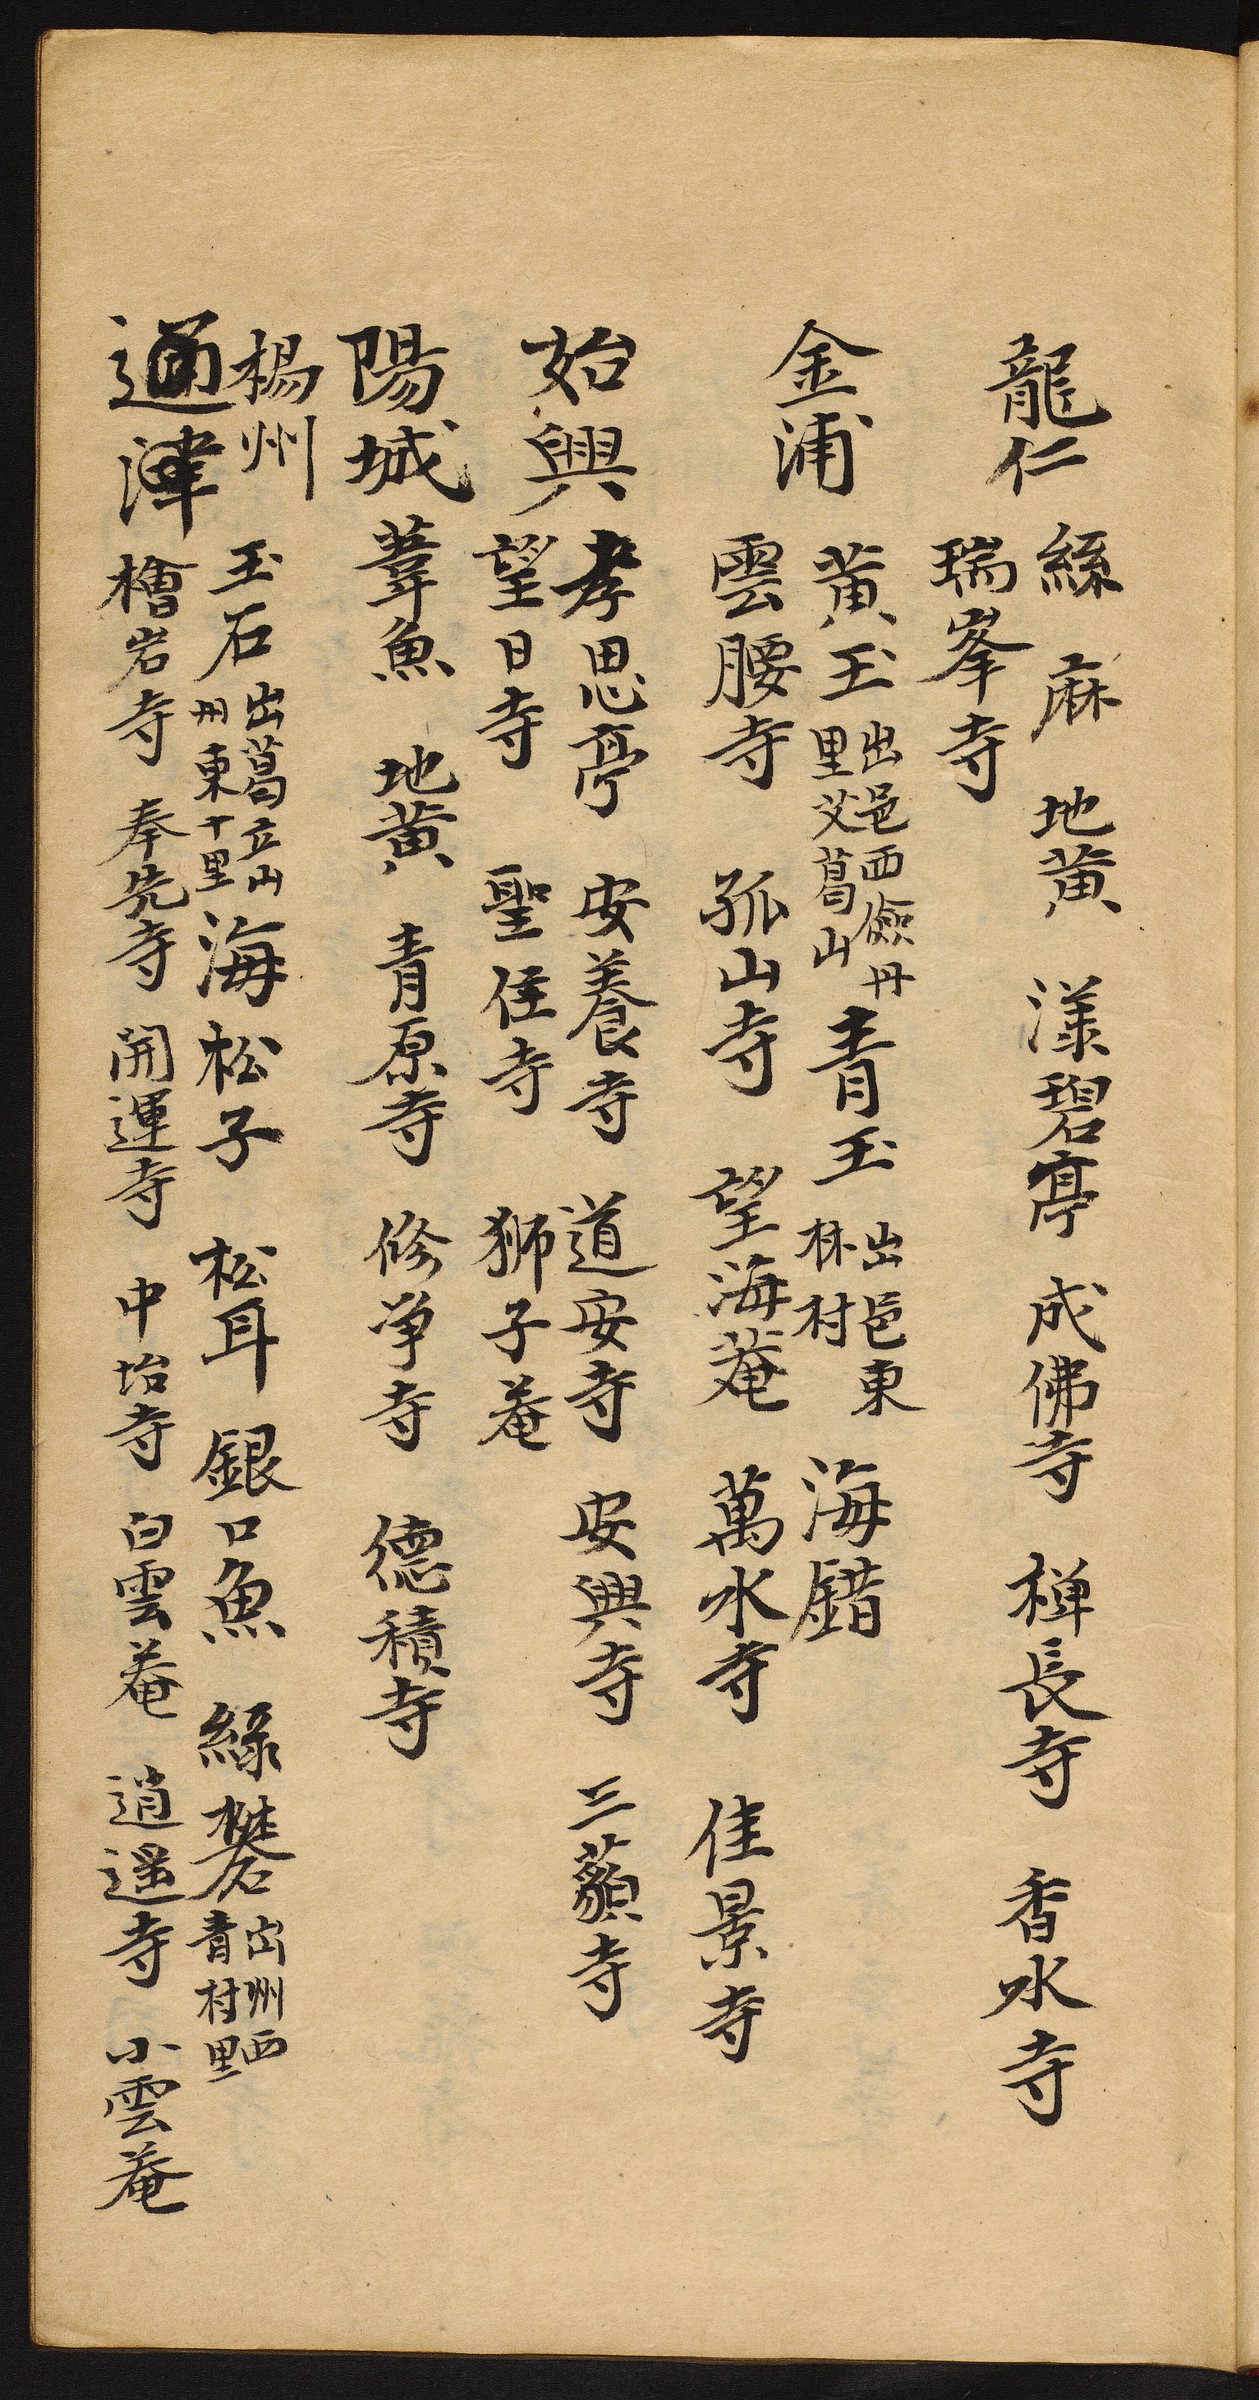 龍仁
絲 麻 地黄 漾碧亭 成佛寺 禅長寺 香水寺
瑞峯寺
金浦
黄玉 出邑西儉丹里艾葛山 青玉 出邑東林村 海錯
雲腰寺 孤山寺 望海菴 萬水寺 佳景寺
始興
孝思亭 安養寺 道安寺 安興寺 三藐寺
望日寺 聖住寺 狮子菴
陽城 葦魚 地黄 青原寺 修净寺 德積寺
楊州 玉石 出葛立山州東十里 海松子 松耳 銀口魚 綠礬 出州西青村里
通津 檜岩寺 奉先寺 開運寺 中坮寺 白雲菴 逍遥寺 小雲菴